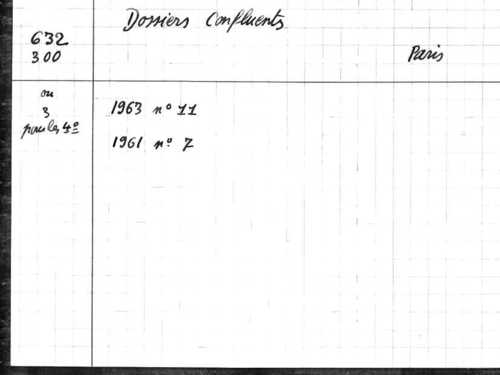 Dossiers Confluents
632
300
Paris
ou
3
pour les 4º
1963 nº 11
1961 nº 7